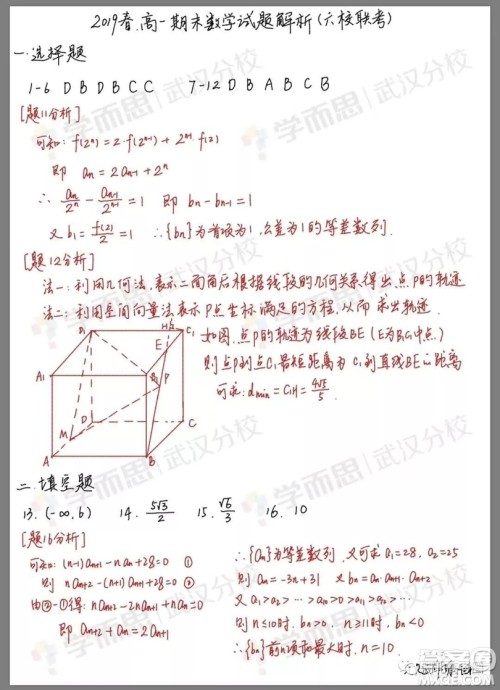 2019春.高一期末数学试题解析(六校联考)
一.选择题
1-6 D B D B C C    7-12 D B A B C B
[题11分析]
可知: f(2ⁿ)=2·f(2ⁿ⁻¹)+2ⁿ⁻¹·f(2)
即 aₙ=2aₙ₋₁+2ⁿ
∴ aₙ/2ⁿ - aₙ₋₁/2ⁿ⁻¹ =1 即 bₙ-bₙ₋₁=1
又 b₁=f(2)/2=1 ∴{bₙ}为首项为1,公差为1的等差数列.
[题12分析]
法一:利用几何法,表示二面角后根据线段的几何关系得出点P的轨迹
法二:利用空间向量法表示P点坐标满足的方程,从而求出轨迹.
如图,点P的轨迹为线段BE(E为B₁C₁中点)
则点P到点C₁最短距离为C₁到直线BE的距离
可求: dmin=C₁H=4√5/5.
D₁ H C₁
E
A₁ B₁ P
D C
M
A B
二.填空题
13. (-∞,6)  14. 5√3/2  15. √6/3  16. 10
[题16分析]
可知: (n-1)aₙ₊₁-naₙ+28=0 ①
则 naₙ₊₂-(n+1)aₙ₊₁+28=0 ②
由②-①得: naₙ₊₂-2naₙ₊₁+naₙ=0
即 aₙ₊₂+aₙ=2aₙ₊₁
∴{aₙ}为等差数列,又可求a₁=28, a₂=25
则 aₙ=-3n+31 又 bₙ=aₙ·aₙ₊₁·aₙ₊₂
又 a₁>a₂>…>a₁₀>0>a₁₁>a₁₂>…
则 n≤10时, bₙ>0, n≥11时, bₙ<0
∴{bₙ}前n项和最大时, n=10.
学而思|武汉分校
答案圈